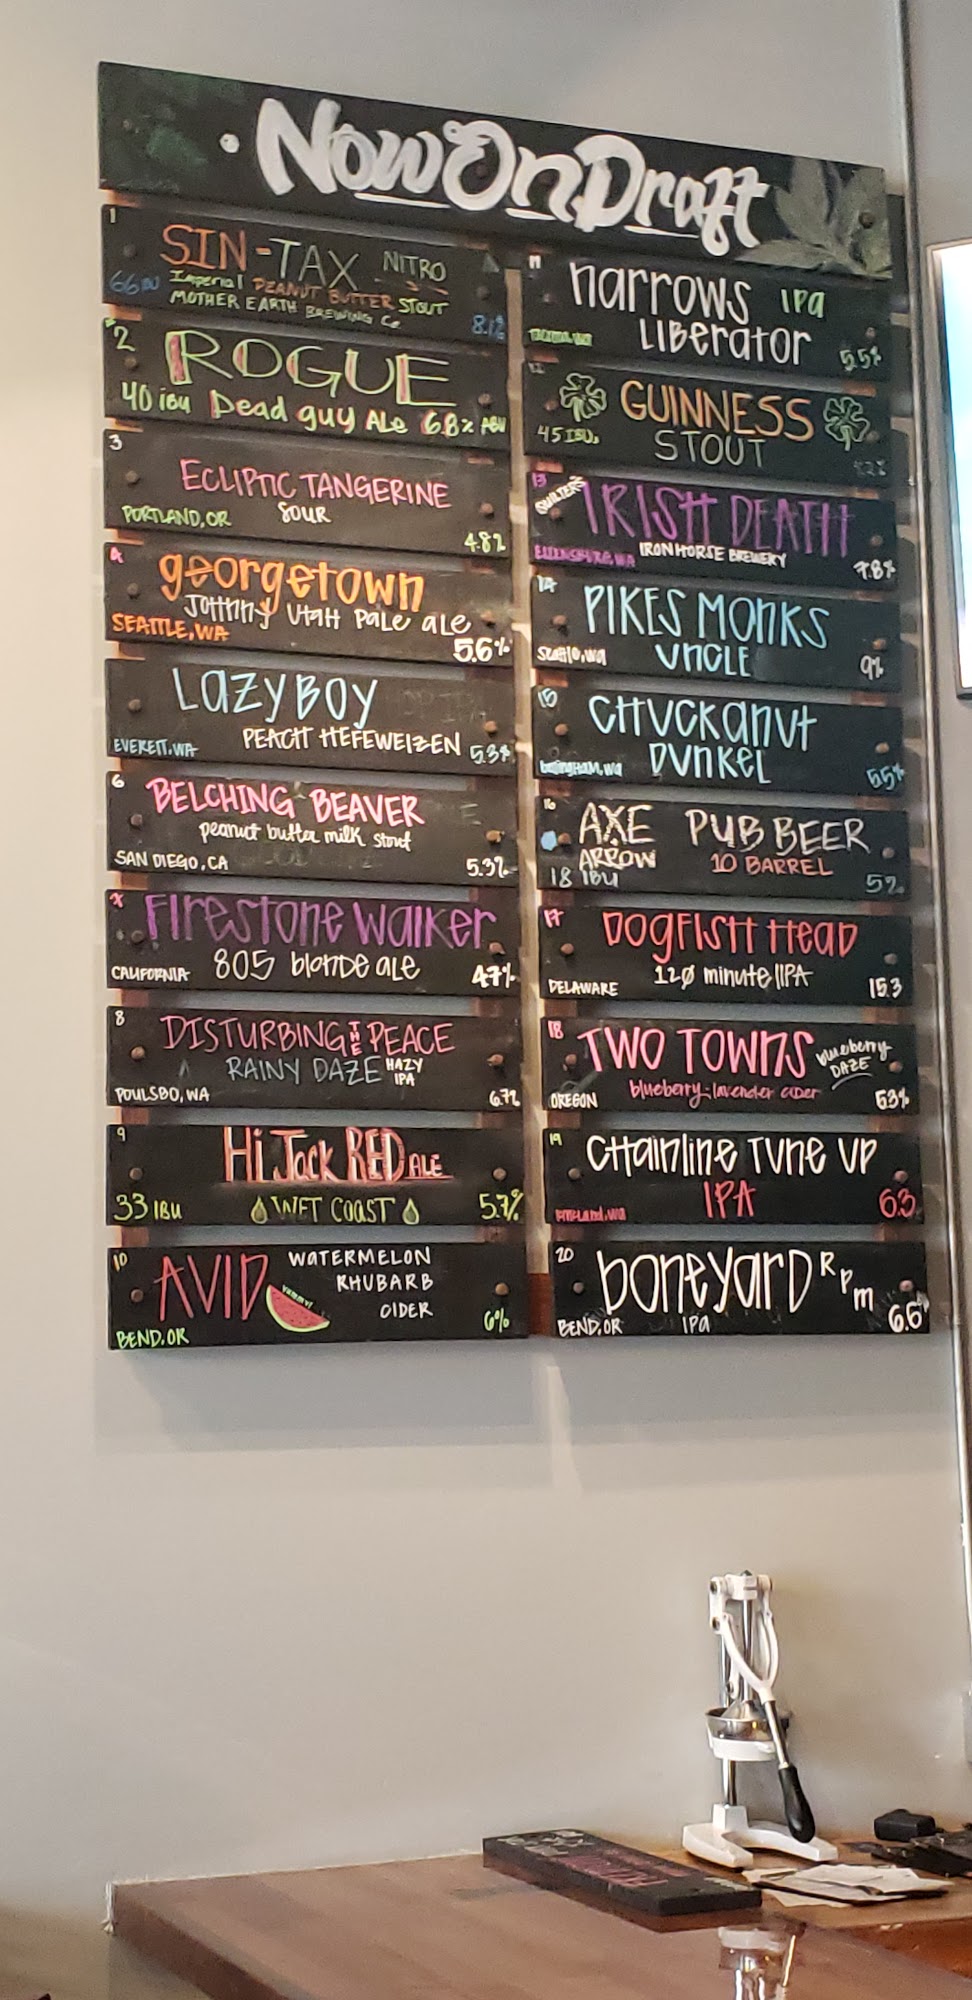 Now On Draft
1
SIN-TAX NITRO
Imperial PEANUT BUTTER STOUT
66 IBU
MOTHER EARTH BREWING Co.
8.1%
#2
ROGUE
40 IBU Dead guy ALe 6.8% ABV
3
ECLIPTIC TANGERINE
SOUR
PORTLAND, OR
4.8%
4
georgetown
JOHnny UtaH PaLe aLe
SEATTLE, WA
5.6%
LazyBoy
EVERETT, WA
PEACH HEFEWEIZEN 5.3%
6
BELCHING BEAVER
peanut butter milk stout
SAN DIEGO, CA
5.3%
7
Firestone walker
CALIFORNIA
805 blonde ale
4.7%
8
DISTURBING THE PEACE
RAINY DAZE HAZY IPA
POULSBO, WA
6.7%
9
Hi Jack RED ALE
33 IBU
WFT COAST
5.7%
10
AVID
WATERMELON
RHUBARB
CIDER
yummy!
BEND, OR
6%
11
narrows IPa
LIBerator
5.5%
12
GUINNESS
45 IBUs
STOUT
13
IRISH DEATH
ELLENSBURG, WA
IRON HORSE BREWERY
7.8%
14
PIKES MONKS
UNCLE
Seattle, wa
9%
15
CHUCKanuT
DUNKeL
bellingham, wa
5.5%
16
AXE PUB BEER
ARROW 10 BARREL
18 IBU
5%
17
DOGFISH HeaD
DELAWARE
120 minute IIPA
15.3
18
TWO TOWNS
blueberry
DAZE
OREGON
blueberry-lavender cider
5.3%
19
CHainline Tune UP
IPA
KIRKLand, wa
6.3
20
boneyarD RPm
BEND, OR
IPa
6.5%